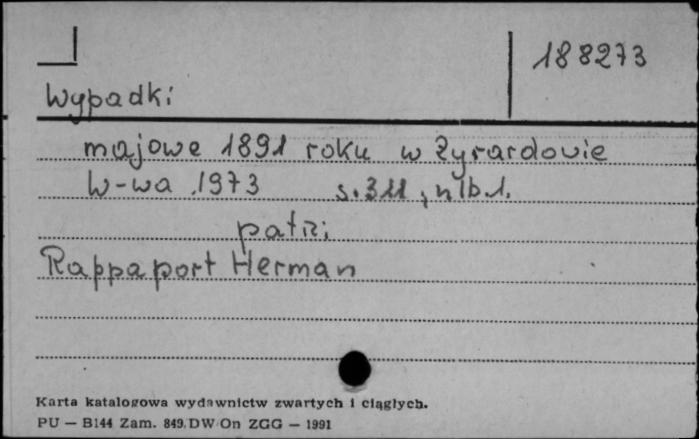 188273
Wypadki
majowe 1891 roku w Żyrardowie
W-wa 1973 s. 311, nlb. 1.
patrz
Rappaport Herman
Karta katalogowa wydawnictw zwartych i ciągłych.
PU — B144 Zam. 849. DW On ZGG — 1991